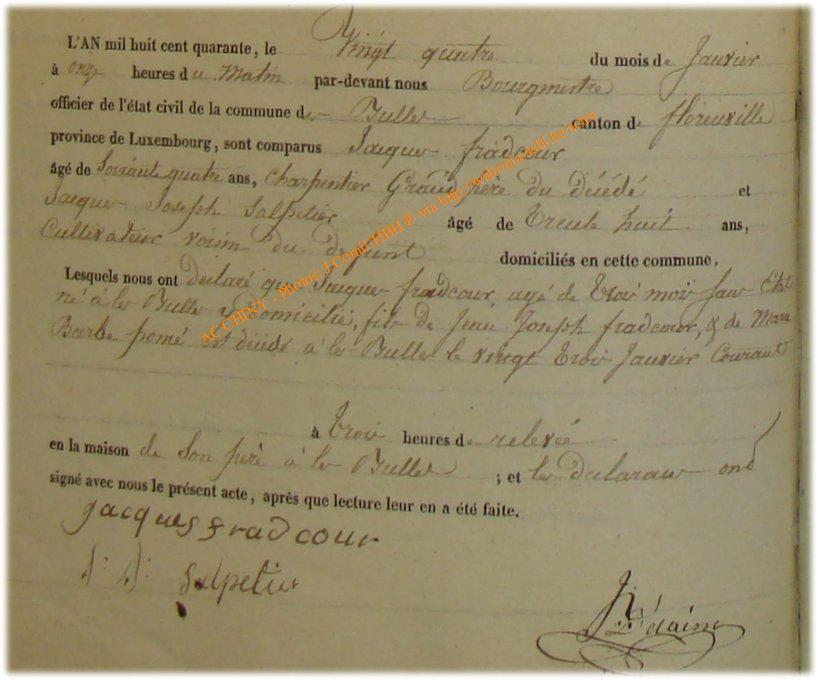 L'AN mil huit cent quarante, le Vingt quatre du mois de Janvier
à onze heures du Matin par-devant nous Bourgmestre
officier de l'état civil de la commune des Bulles canton de florenville
province de Luxembourg, sont comparus Jacques fradcour
âgé de Soixante quatre ans, charpentier Grand père du décédé et
Jacques Joseph Salpetier âgé de Trente huit ans,
Cultivateur voisin du defunt domiciliés en cette commune.
Lesquels nous ont declaré que Jacques fradcour, agé de trois mois sans Etat
né à les Bulles y domicilié, fils de Jean Joseph fradcour, & de Marie
Barbe pomé est décédé à les Bulles le vingt trois Janvier Courant
à trois heures de relevée
en la maison de Son père à les Bulles ; et les declarans ont
signé avec nous le présent acte, après que lecture leur en a été faite.
jacques fradcour
J: J: Salpetier
AC CHINY - Photos J.Comit HBH ® via http://